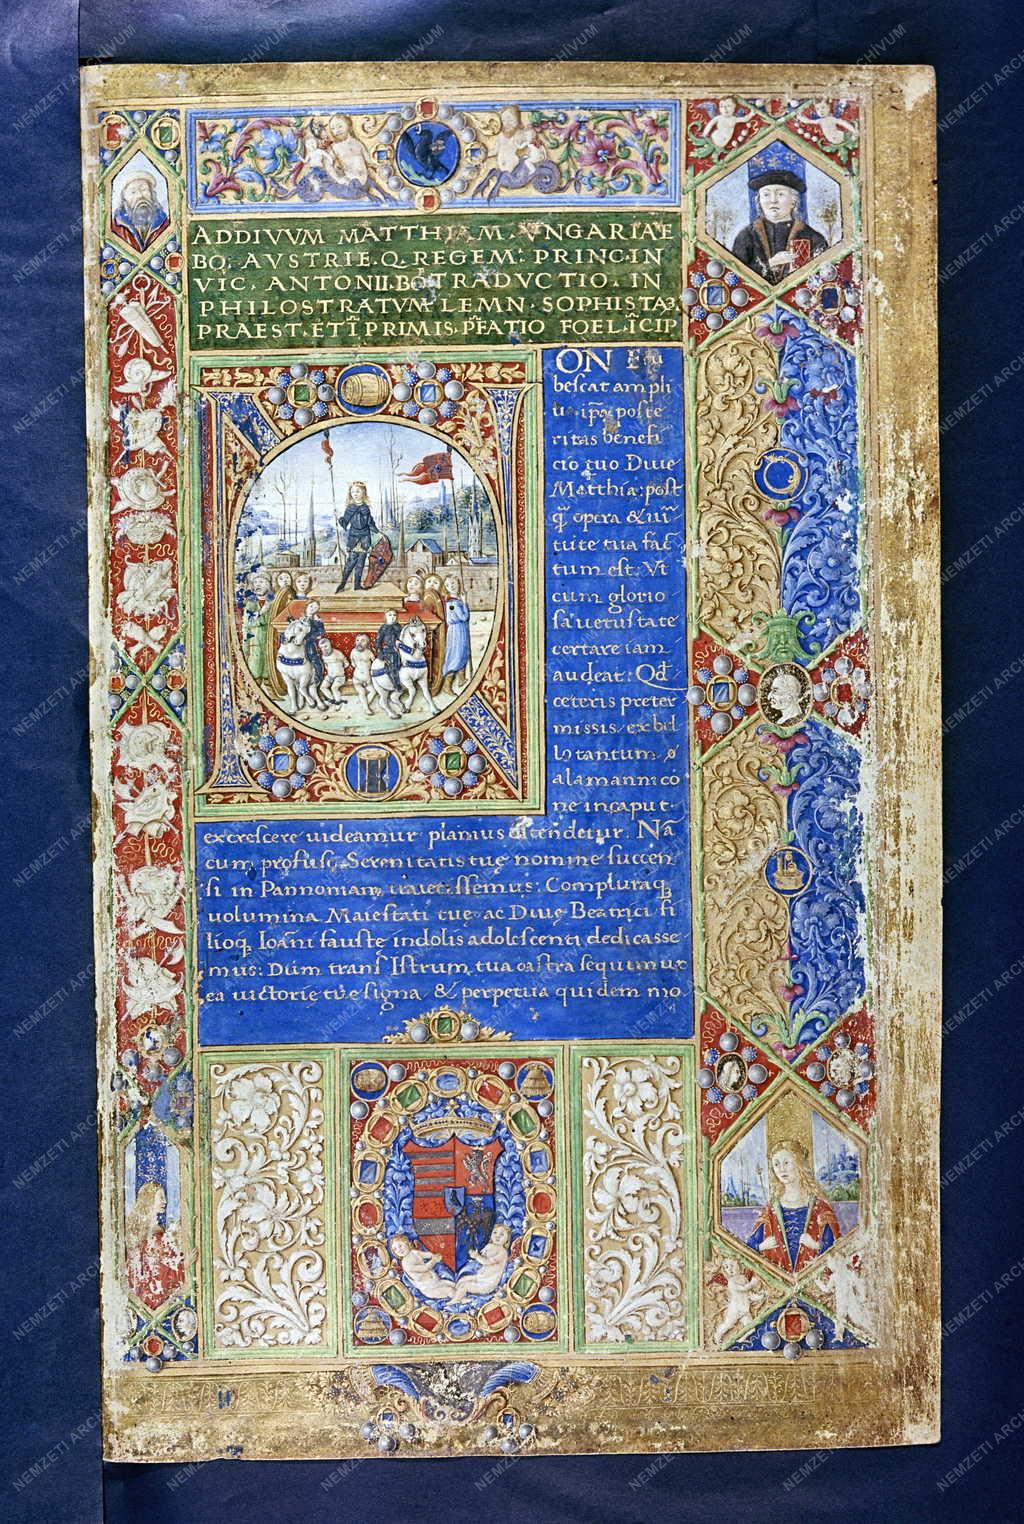 ADDIVVM MATTHIAM. VNGARIAE
BO. AVSTRIE. Q. REGEM: PRINC. IN
VIC. ANTONII. BO TRADVCTIO. IN
PHILOSTRATVM. LEMN. SOPHISTA
PRAEST. ET I PRIMIS. PFATIO FOEL. ICIP
N
ON
bescat ampli
poste
ritas benefi
cio tuo Diue
Matthia: post
q̃ opera & uir̃
tute tua fac
tum est: Vt
cum glorio
sa uetustate
certare iam
audeat: Qđ
ceteris preter
missis ex
lo tantum
alamanni co
ne in caput
excrescere uideamur planius ostendetur. Nã
cum profusq̨ Serenitatis tuę nomine succen
si in Pannoniam Compluraq̨
uolumina Maiestati tuę ac Diuę Beatrici fi
lioq̨ Ioãni fauste indolis adolescenti dedicasse
mus: Dum trans Istrum tua castra sequimur
ea uictorie tue signa & perpetua quidem mo
NEMZETI ARCHÍVUM